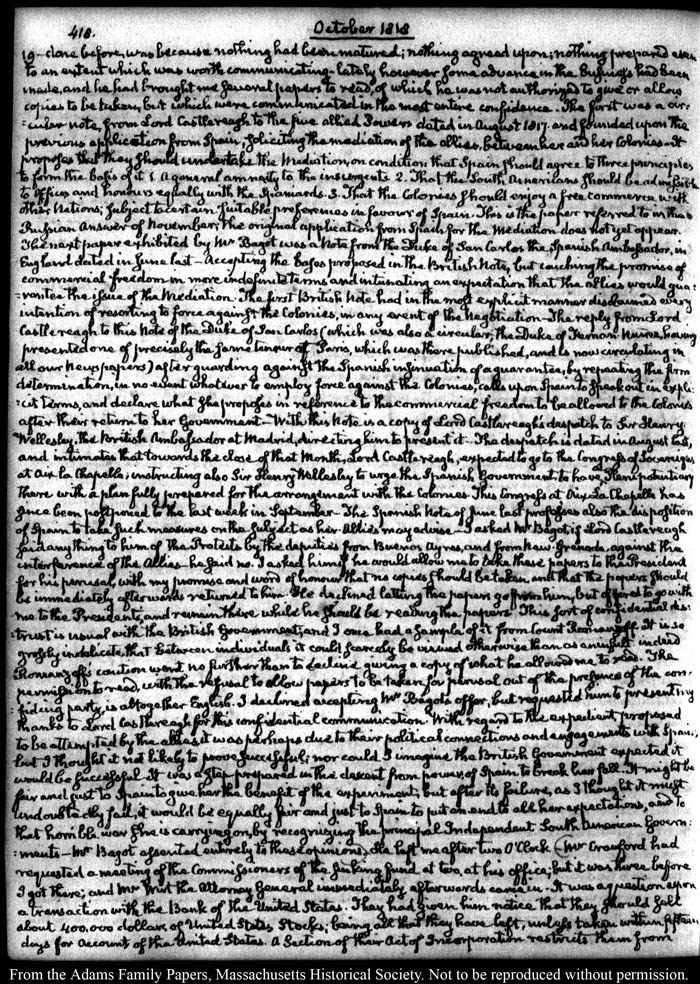 418.
October 1818
19 - done before, was because nothing had been matured; nothing agreed upon; nothing prepared even
to an extent which was worth communicating - lately however some advance in the Business had been
made, and he had brought me several papers to read, of which he was not authorized to give or allow
copies to be taken, but which were communicated in the most entire confidence. The first was a cir-
:cular note, from Lord Castlereagh to the five allied Powers dated in August 1817 and founded upon the
previous application from Spain, soliciting the mediation of the allies, between her and her Colonies - It
proposes that they should undertake the Mediation, on condition that Spain should agree to three principles
to form the basis of it 1. A general amnesty to the insurgents 2. That the South Americans should be admissible
to Offices and honours equally with the Spaniards. 3. That the Colonies should enjoy a free commerce with
other Nations; subject to certain suitable preferences in favour of Spain. This is the paper referred to in the
Russian Answer of November; the original application from Spain for the Mediation does not yet appear.
The next paper exhibited by Mr Bagot was a Note from the Duke of San Carlos the Spanish Ambassador, in
England dated in June last - Accepting the bases proposed in the British Note, but couching the promise of
commercial freedom in more indefinite terms and intimating an expectation that the allies would gua:
:rantee the issue of the Mediation. The first British Note had in the most explicit manner disclaimed every
intention of resorting to force against the Colonies, in any event of the Negotiation - The reply from Lord
Castlereagh to this Note of the Duke of San Carlos (which was also a circular, the Duke of Fernan Nunez, having
presented one of precisely the same tenour at Paris, which was there published, and is now circulating in
all our Newspapers) after guarding against the Spanish insinuation of a guarantee, by repeating the firm
determination, in no event whatever to employ force against the Colonies, calls upon Spain to speak out in expli
:cit terms, and declare what she proposes in reference to the commercial freedom to be allowed to the Colonies
after their return to her Government - With this Note is a copy of Lord Castlereagh's despatch to Sir Henry
Wellesley, the British Ambassador at Madrid, directing him to present it - The despatch is dated in August last,
and intimates that towards the close of that Month, Lord Castlereagh, expected to go to the Congress of Sovereigns
at Aix la Chapelle; instructing also Sir Henry Wellesley to urge the Spanish Government, to have, Plenipotentiary
there with a plan fully prepared for the arrangement with the Colonies. This Congress at Aix La Chapelle has
since been postponed to the last week in September - The Spanish Note of June last professes also the disposition
of Spain to take such measures on the subject as her Allies may advise - I asked Mr Bagot, if Lord Castlereagh
said any thing to him of the Protests by the deputies from Buenos Ayres, and from New Grenada, against the
interference of the Allies - he said no. I asked him if he would allow me to take these papers to the President
for his perusal, with my promise and word of honour that no copies should be taken, and that the papers should
be immediately afterwards returned to him - He declined letting the papers go from him, but offered to go with
me to the President's, and remain there while he should be reading the papers - This sort of confidential dis:
trust is usual with the British Government; and I once had a sample of it from Count Romanzoff. It is so
grossly indelicate, that between individuals it could scarcely be viewed otherwise than as an insult - indeed
Romanzoff's caution went no further than to decline giving a copy of what he allowed me to read. The
permission to read, with the refusal to allow papers to be taken for perusal out of the presence of the con-
:fiding party, is altogether English. I declined accepting Mr Bagot's offer, but requested him to present my
thanks to Lord Castlereagh for this confidential communication. With regard to the expedient proposed
to be attempted by the allies it was perhaps due to their political connections and engagements with Spain;
but I thought it not likely to prove successful; nor could I imagine the British Government expected it
would be successful. It was a step prepared in the descent from power, of Spain to break her fall. It might be
fair and just to Spain to give her the benefit of the experiment, but after its failure, as I thought it must
undoubtedly fail, it would be equally fair and just to Spain to put an end to all her expectations, and to
that horrible war she is carrying on, by recognizing the principal Independent South American Govern:
:ments - Mr Bagot assented entirely to these opinions. He left me after two O'Clock - Mr Crawford had
requested a meeting of the Commissioners of the Sinking Fund at two, at his office; but it was three before
I got there; and Mr Wirt the Attorney General immediately afterwards came in. It was a question upon
a transaction with the Bank of the United States. They had given him notice that they should sell
about 400,000 dollars of United States Stocks; being all that they have left, unless taken within fifteen
days for account of the United States. A Section of their Act of Incorporation restricts them from
From the Adams Family Papers, Massachusetts Historical Society. Not to be reproduced without permission.